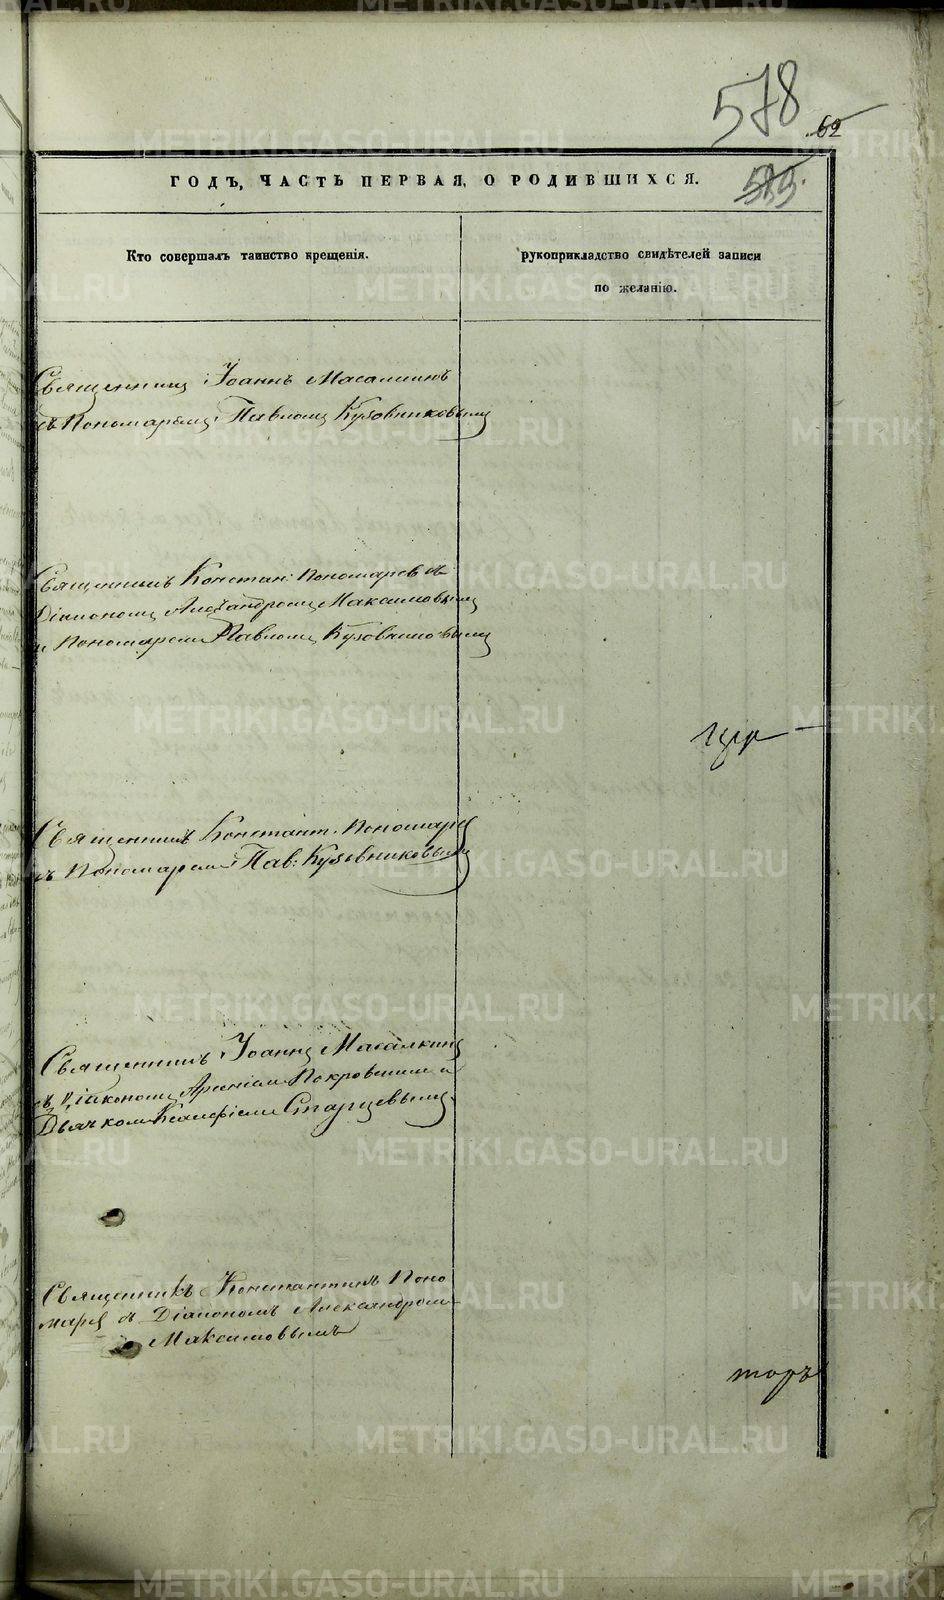 578
62
ГОДЪ, ЧАСТЬ ПЕРВАЯ, О РОДИВШИХСЯ.
Кто совершалъ таинство крещенія.
рукоприкладство свидѣтелей записи
по желанію.
Священникъ Іоаннъ Масалкинъ
съ Пономаремъ Павломъ Кузовниковымъ
Священникъ Констан: Пономарев съ
Діакономъ Александромъ Максимовымъ
и Пономаремъ Павломъ Кузовниковымъ
Священникъ Констант. Пономарев
съ Пономаремъ Пав: Кузовниковымъ
Священникъ Іоаннъ Масалкинъ
съ Діакономъ Арсеніемъ Покровскимъ и
Дьячкомъ Старцевымъ
Священникъ Константинъ Поно
марев съ Діакономъ Александромъ
Максимовымъ
торъ
METRIKI.GASO-URAL.RU